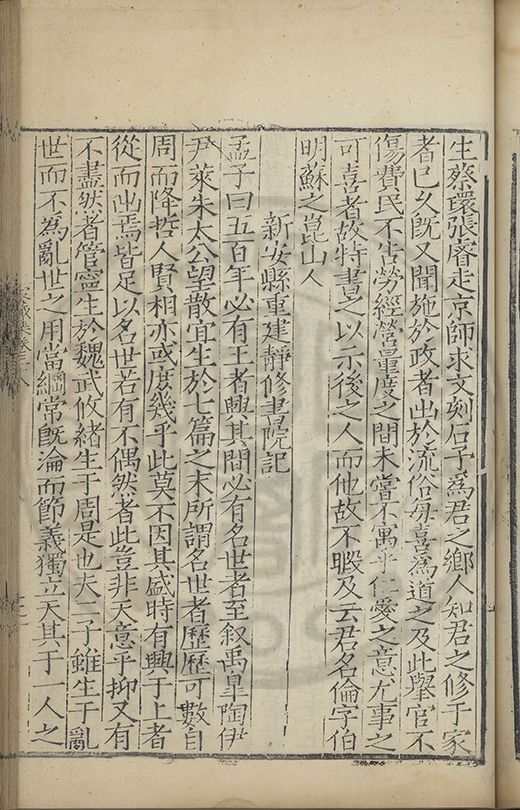 生蔡環張睿走京師求文刻石予為君之鄉人知君之修于家
者已久既又聞施於政者出於流俗每喜為道之及此舉官不
傷費民不告勞經營量度之間未嘗不寓乎仁愛之意尤事之
可喜者故特書之以示後之人而他故不暇及云君名倫字伯
明蘇之崑山人
新安縣重建靜修書院記
孟子曰五百年必有王者興其間必有名世者至叙禹臯陶伊
尹萊朱太公望散宜生於七篇之末所謂名世者歷歷可數自
周而降哲人賢相亦或庶幾乎此莫不因其盛時有興于上者
從而出焉皆足以名世若有不偶然者此豈非天意乎抑又有
不盡然者管寧生於魏武攸緒生于周是也夫二子雖生于亂
世而不為亂世之用當綱常既淪而節義獨立天其于一人之